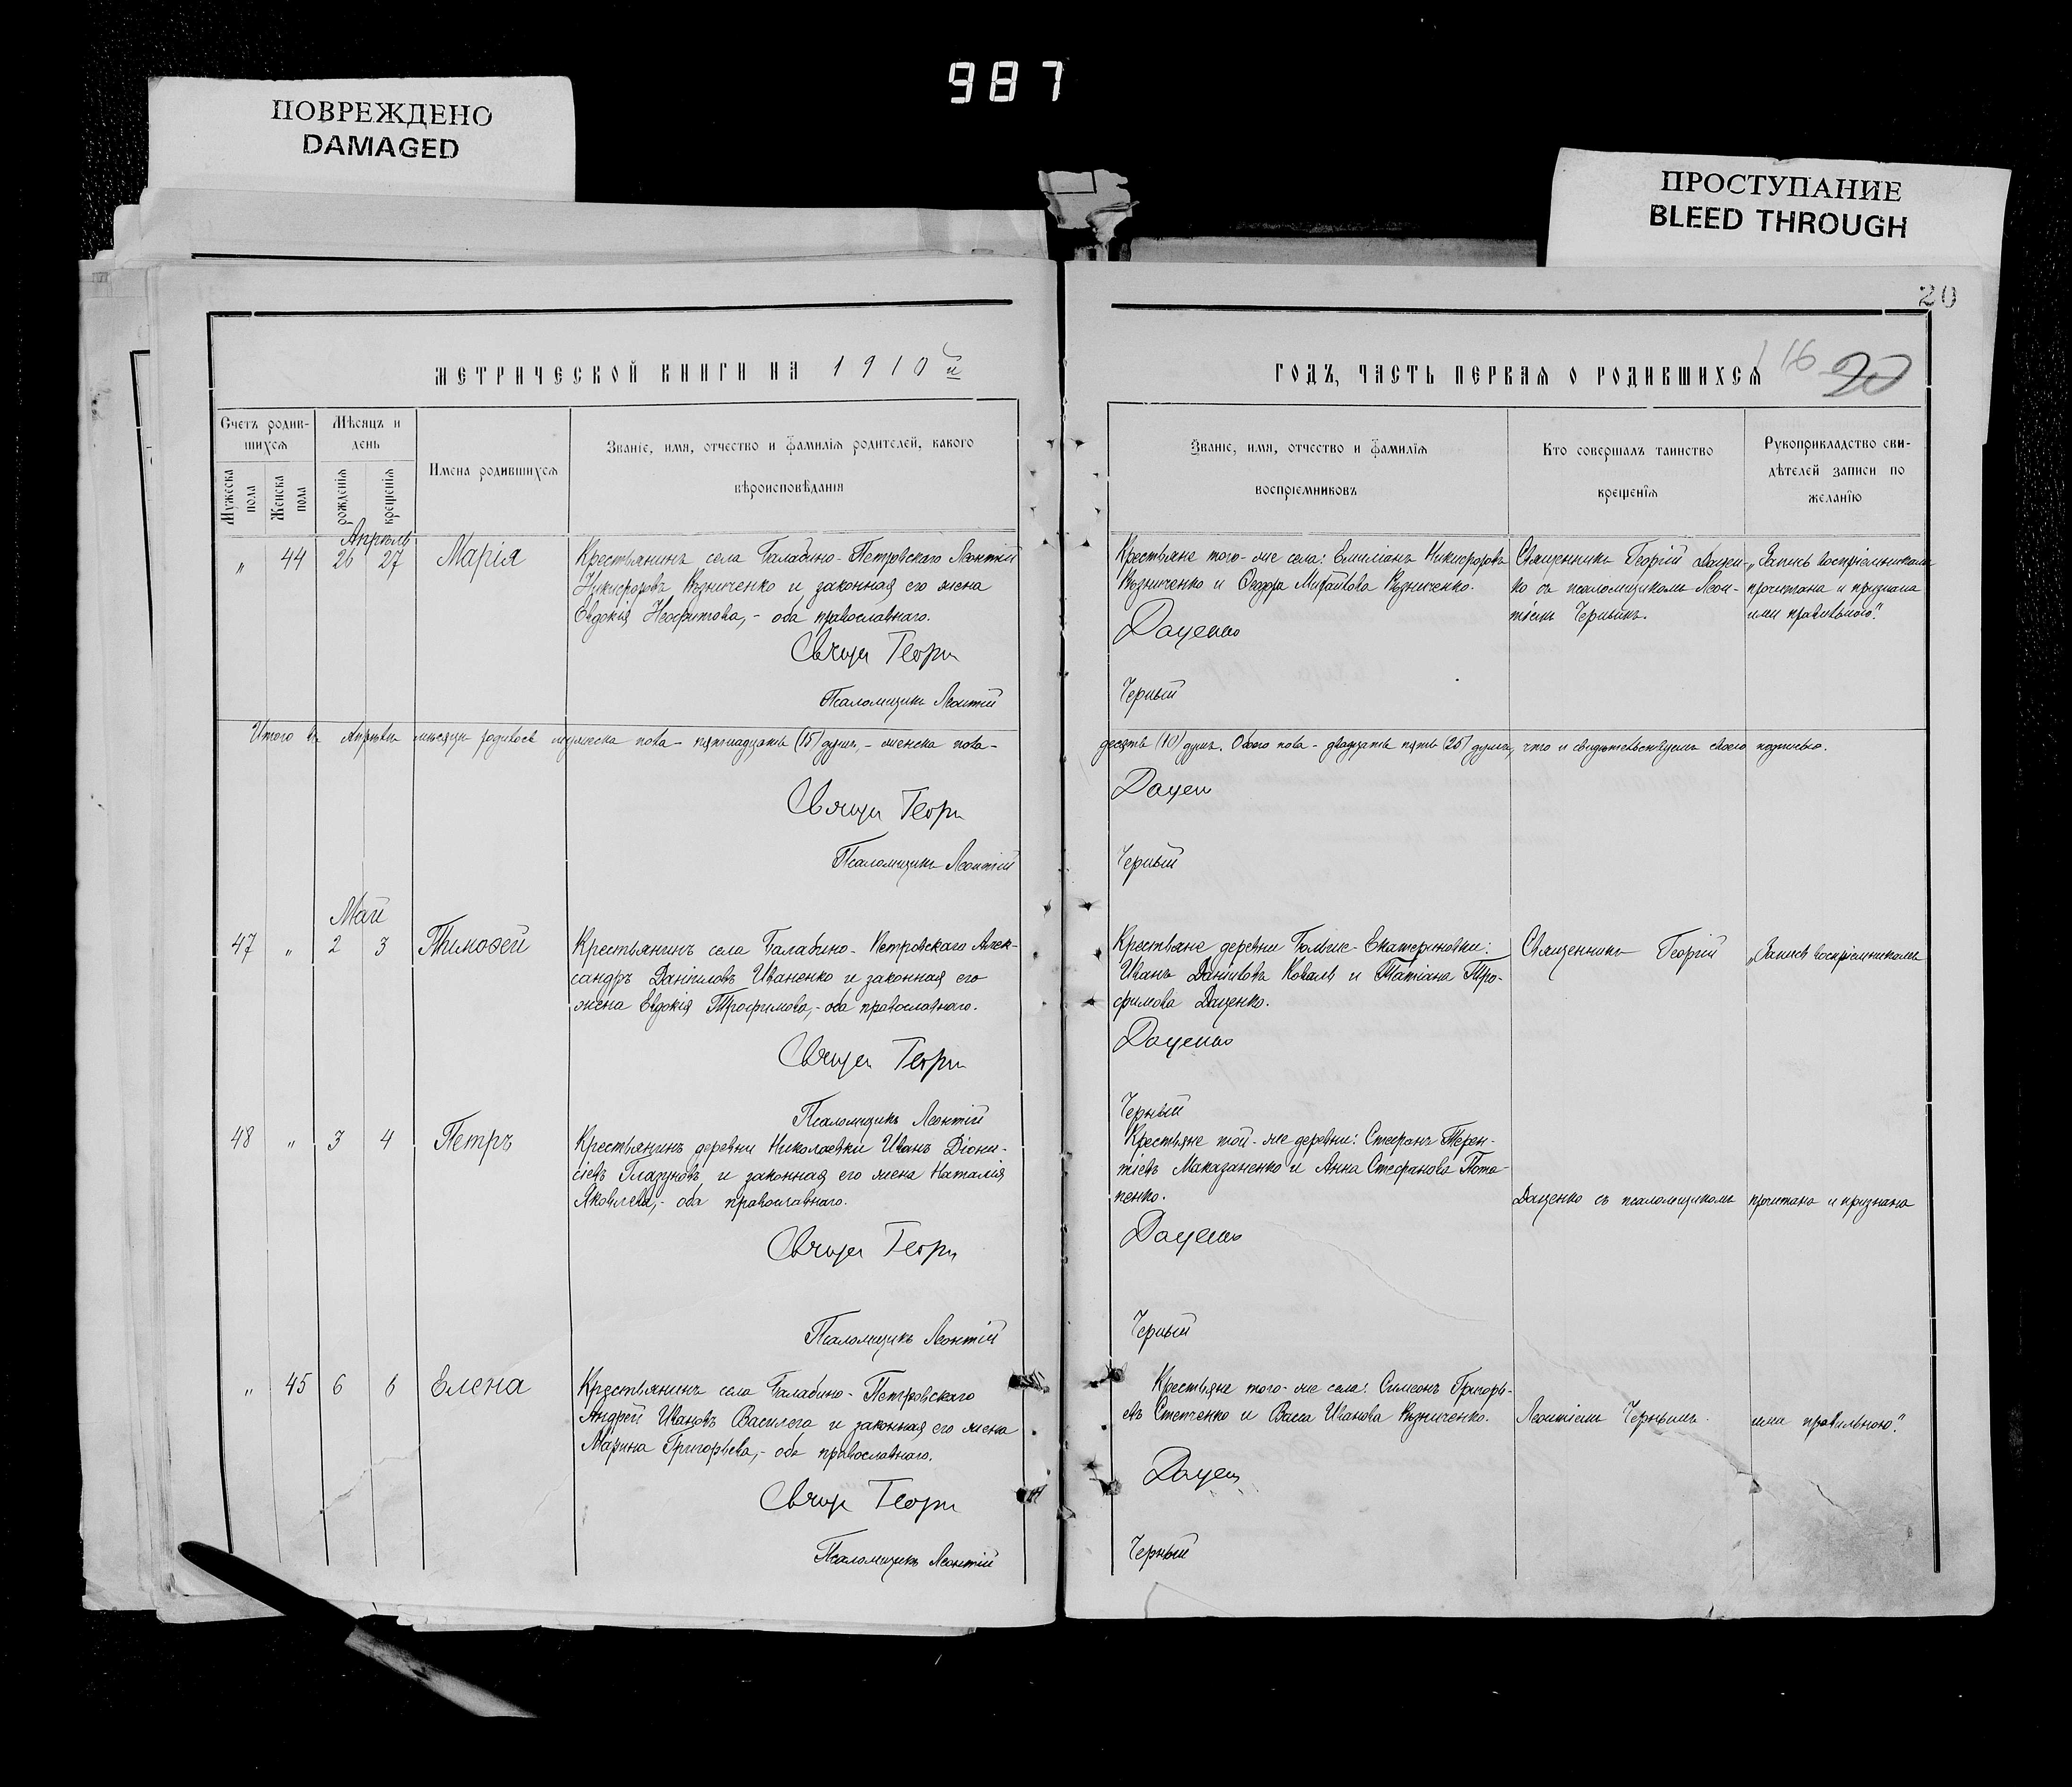 987
ПОВРЕЖДЕНО
DAMAGED
ПРОСТУПАНИЕ
BLEED THROUGH
20
МЕТРИЧЕСКОЙ КНИГИ НА 1910й
ГОДЪ, ЧАСТЬ ПЕРВАЯ О РОДИВШИХСЯ
16 20
Счетъ родив-
шихся
Мужеска
пола
Женска
пола
Мѣсяцъ и
день
рожденія
крещенія
Имена родившихся
Званіе, имя, отчество и фамилія родителей, какого
вѣроисповѣданія
Званіе, имя, отчество и фамилія
воспріемниковъ
Кто совершалъ таинство
крещенія
Рукоприкладство сви-
дѣтелей записи по
желанію
Апрѣль
„ 44 26 27 Марія
Крестьянинъ села Балабино-Петровскаго Леонтій
Никифоровъ Возниченко и законная его жена
Евдокія Неофитова,- оба православнаго.
Свящ Георгі
Псаломщикъ Леонтій
Крестьяне того-же села: Емиліанъ Никифоровъ
Возниченко и Ѳеодора Михайлова Возниченко.
Даценко
Черный
Священникъ Георгій Дацен-
ко съ псаломщикомъ Леон-
тіемъ Чернымъ.
„Запись воспріемниками
прочитана и признана
ими правильною".
Итого въ Апрѣлѣ мѣсяцѣ родилось мужеска пола- пятнадцать (15) душъ,- женска пола-
десять (10) душъ. Обоего пола- двадцать пять (25) душъ, что и свидѣтельствуемъ своею подписью.
Свящ Георгі
Дацен
Псаломщикъ Леонтій
Черный
Май
47 „ 2 3 Тимоѳей
Крестьянинъ села Балабино-Петровскаго Алек-
сандръ Даніиловъ Иваненко и законная его
жена Евдокія Трофимова,- оба православнаго.
Свящ Георгі
Псаломщикъ Леонтій
Крестьяне деревни Больше-Екатериновки:
Иванъ Даніиловъ Коваль и Татіана Тро-
фимова Даценко.
Даценко
Черный
Священникъ Георгій
„Запись воспріемниками
48 „ 3 4 Петръ
Крестьянинъ деревни Николаевки Иванъ Діони-
сіевъ Глазуновъ и законная его жена Наталія
Яковлева,- оба православнаго.
Свящ Георгі
Псаломщикъ Леонтій
Крестьяне той-же деревни: Стефанъ Терен-
тіевъ Маказаненко и Анна Стефанова Пота-
пенко.
Даценко
Черный
Даценко съ псаломщикомъ
прочитана и признана
„ 45 6 6 Елена
Крестьянинъ села Балабино-Петровскаго
Андрей Ивановъ Василега и законная его жена
Марина Григорьева,- оба православнаго.
Свящ Георгі
Псаломщикъ Леонтій
Крестьяне того-же села: Симеонъ Григорь-
евъ Степченко и Васса Иванова Возниченко.
Дацен
Черный
Леонтіемъ Чернымъ.
ими правильною".